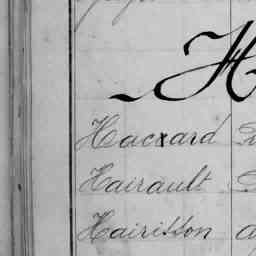 H
Haczard
Hairault
Hairisson